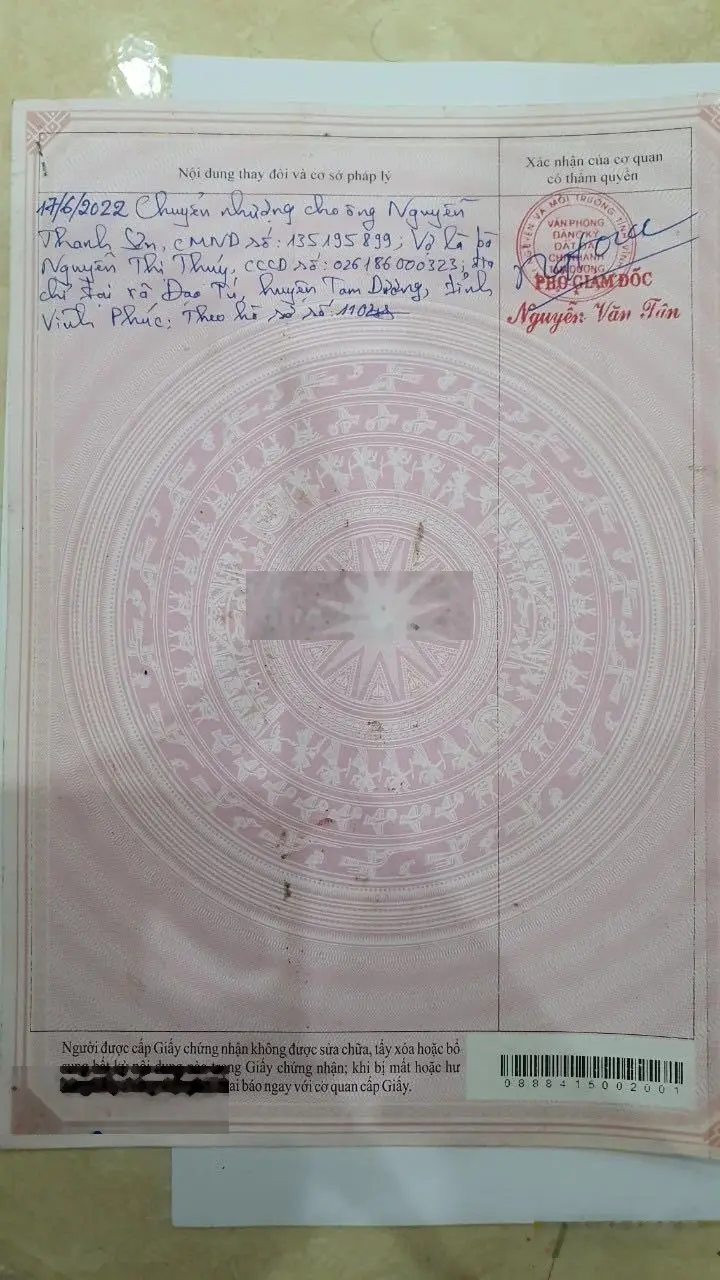 Nội dung thay đổi và cơ sở pháp lý
Xác nhận của cơ quan
có thẩm quyền
17/6/2022 Chuyển nhượng cho ông Nguyễn
Thanh Sơn, CMND số: 135195899; Vợ là bà
Nguyễn Thị Thúy, CCCD số: 026186000323; địa
chỉ tại xã Đạo Tú, huyện Tam Dương, tỉnh
Vĩnh Phúc; Theo hồ sơ số: 1104
NGUYÊN VÀ MÔI TRƯỜNG TỈNH VĨNH
VĂN PHÒNG
ĐĂNG KÝ
ĐẤT ĐAI
CHI NHÁNH
TAM DƯƠNG
PHÓ GIÁM ĐỐC
Nguyễn Văn Tân
Người được cấp Giấy chứng nhận không được sửa chữa, tẩy xóa hoặc bổ
sung bất kỳ nội dung nào trong Giấy chứng nhận; khi bị mất hoặc hư
khai báo ngay với cơ quan cấp Giấy.
0888415002001